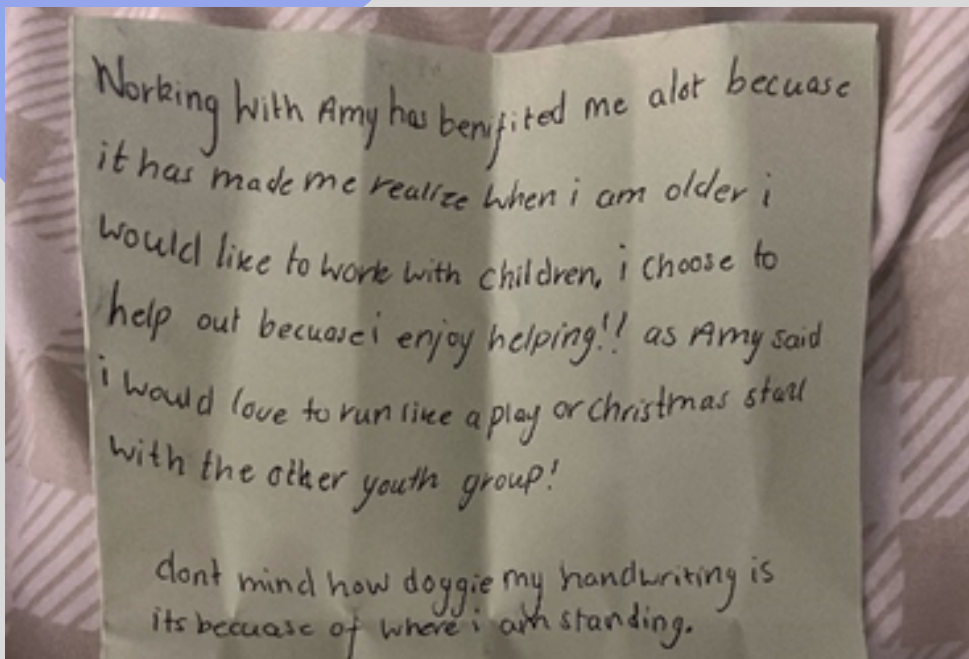 Working with Amy has benifited me alot becuase
it has made me realize when i am older i
would like to work with children, i choose to
help out becuase i enjoy helping!! as Amy said
i would love to run like a play or christmas stall
with the other youth group!
dont mind how doggie my handwriting is
its becuase of where i am standing.